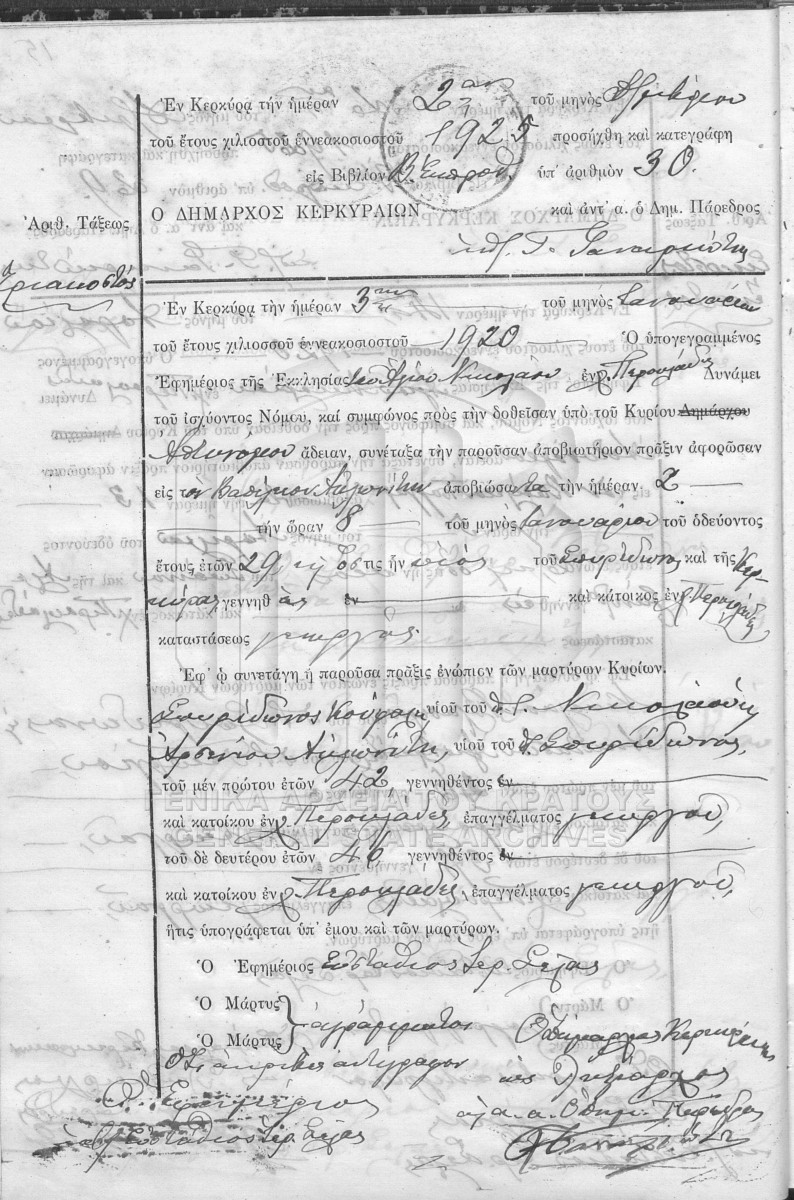 Ἐν Κερκύρᾳ τὴν ἡμέραν 2αν τοῦ μηνὸς
τοῦ ἔτους χιλιοστοῦ ἐννεακοσιοστοῦ 1925 προσήχθη καὶ κατεγράφη
εἰς Βιβλίον ὑπ' ἀριθμὸν 30.
Ἀριθ. Τάξεως
Ο ΔΗΜΑΡΧΟΣ ΚΕΡΚΥΡΑΙΩΝ καὶ ἀντ' α. ὁ Δημ. Πάρεδρος
Τριακοστὸς
Ἐν Κερκύρᾳ τὴν ἡμέραν 3ην τοῦ μηνὸς Ἰανουαρίου
τοῦ ἔτους χιλιοσσοῦ ἐννεακοσιοστοῦ 1920 Ὁ ὑπογεγραμμένος
Ἐφημέριος τῆς Ἐκκλησίας Ἁγίου Νικολάου ἐν χ. Περουλάδες Δυνάμει
τοῦ ἰσχύοντος Νόμου, καὶ συμφώνος πρὸς τὴν δοθεῖσαν ὑπὸ τοῦ Κυρίου Δημάρχου
Ἀστυνόμου ἄδειαν, συνέταξα τὴν παροῦσαν ἀποβιωτήριον πρᾶξιν ἀφορῶσαν
εἰς τὸν Αὐλωνίτην ἀποβιώσαντα τὴν ἡμέραν 2
τὴν ὥραν 8 τοῦ μηνὸς Ἰανουαρίου τοῦ ὁδεύοντος
ἔτους, ἐτῶν 29 ὅστις ἦν υἱὸς τοῦ Σπυρίδωνος καὶ τῆς Κερ-
κύρας γεννηθεὶς ἐν καὶ κάτοικος ἐν χ. Περουλάδες
καταστάσεως γεωργὸς
Ἐφ' ᾧ συνετάγη ἡ παροῦσα πρᾶξις ἐνώπιον τῶν μαρτύρων Κυρίων.
Σπυρίδωνος υἱοῦ τοῦ π. Νικολάου,
Ἀρσενίου Αὐλωνίτη, υἱοῦ τοῦ π. Σπυρίδωνος,
τοῦ μέν πρώτου ἐτῶν 42 γεννηθέντος ἐν
ΓΕΝΙΚΑ ΑΡΧΕΙΑ ΤΟΥ ΚΡΑΤΟΥΣ
καὶ κατοίκου ἐν χ. Περουλάδες, ἐπαγγέλματος γεωργοῦ,
GENERAL STATE ARCHIVES
τοῦ δὲ δευτέρου ἐτῶν 46 γεννηθέντος ἐν
καὶ κατοίκου ἐν χ. Περουλάδες, ἐπαγγέλματος γεωργοῦ,
ἥτις ὑπογράφεται ὑπ' ἐμου καὶ τῶν μαρτύρων.
Ὁ Ἐφημέριος Εὐστάθιος Ἱερ.
Ὁ Μάρτυς
Ὁ Μάρτυς ἀγράμματοι
Ὅτι ἀκριβὲς ἀντίγραφον
Ὁ Ἐφημέριος
Εὐστάθιος Ἱερ.
Ὁ Δήμαρχος Κερκυραίων
ὡς Ληξίαρχος